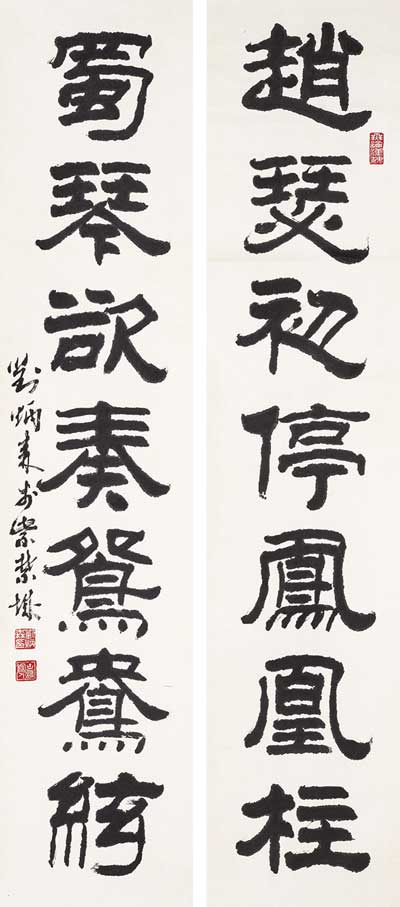 趙瑟初停鳳凰柱
蜀琴欲奏鴛鴦絃
劉炳森書於紫禁城